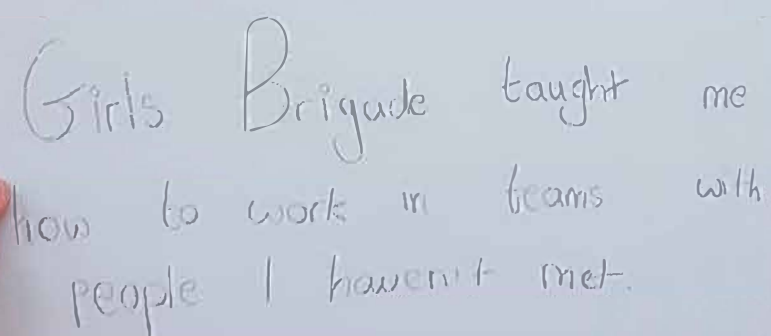 Girls Brigade taught me
how to work in teams with
people I haven't met.